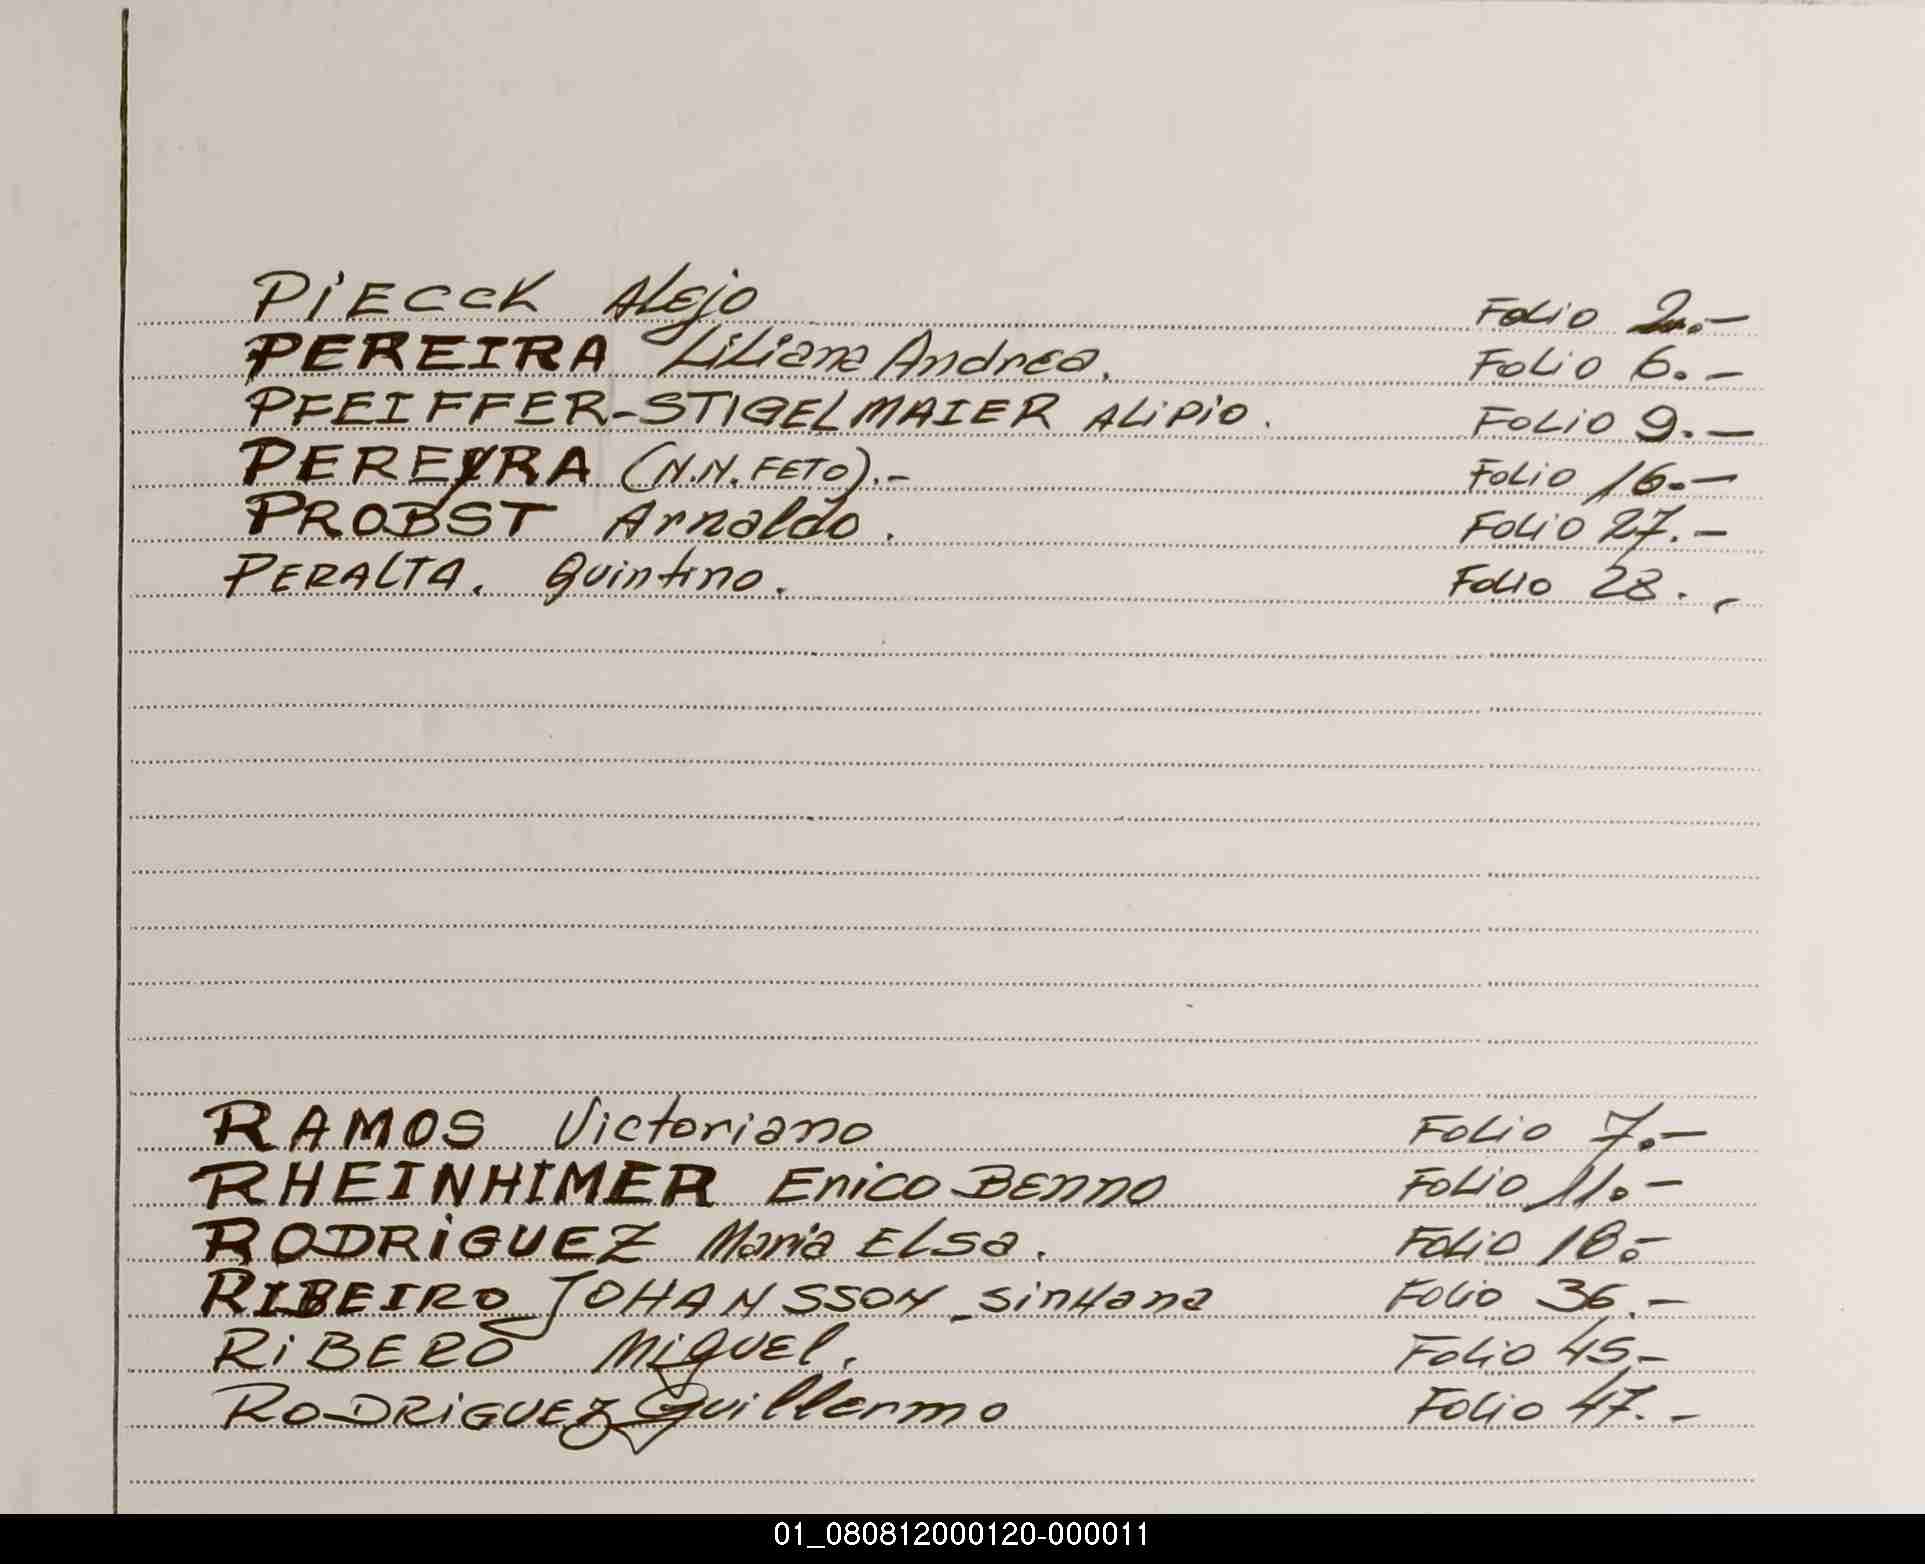 PiECCK ALEjo Folio 2.-
PEREIRA LiLiana Andrea. FoLio 6.-
PFEIFFER-STIGELMAIER ALiPio. FOLIO 9.-
PEREYRA (N.N. FETO).- FoLio 16.-
PROBST Arnaldo. FoLio 27.-
PERALTA. Quintino. Folio 28.-
RAMOS Victoriano FoLio 7.-
RHEINHIMER Enico Benno FoLio 11.-
RODRiGUEZ Maria ELsa. FoLio 18.-
RIBEIRO JOHANSSON sinHana Folio 36.-
RiBERO MiGUEl. FoLio 45.-
RODRiGUEZ Guillermo FoLio 47.-
01_080812000120-000011